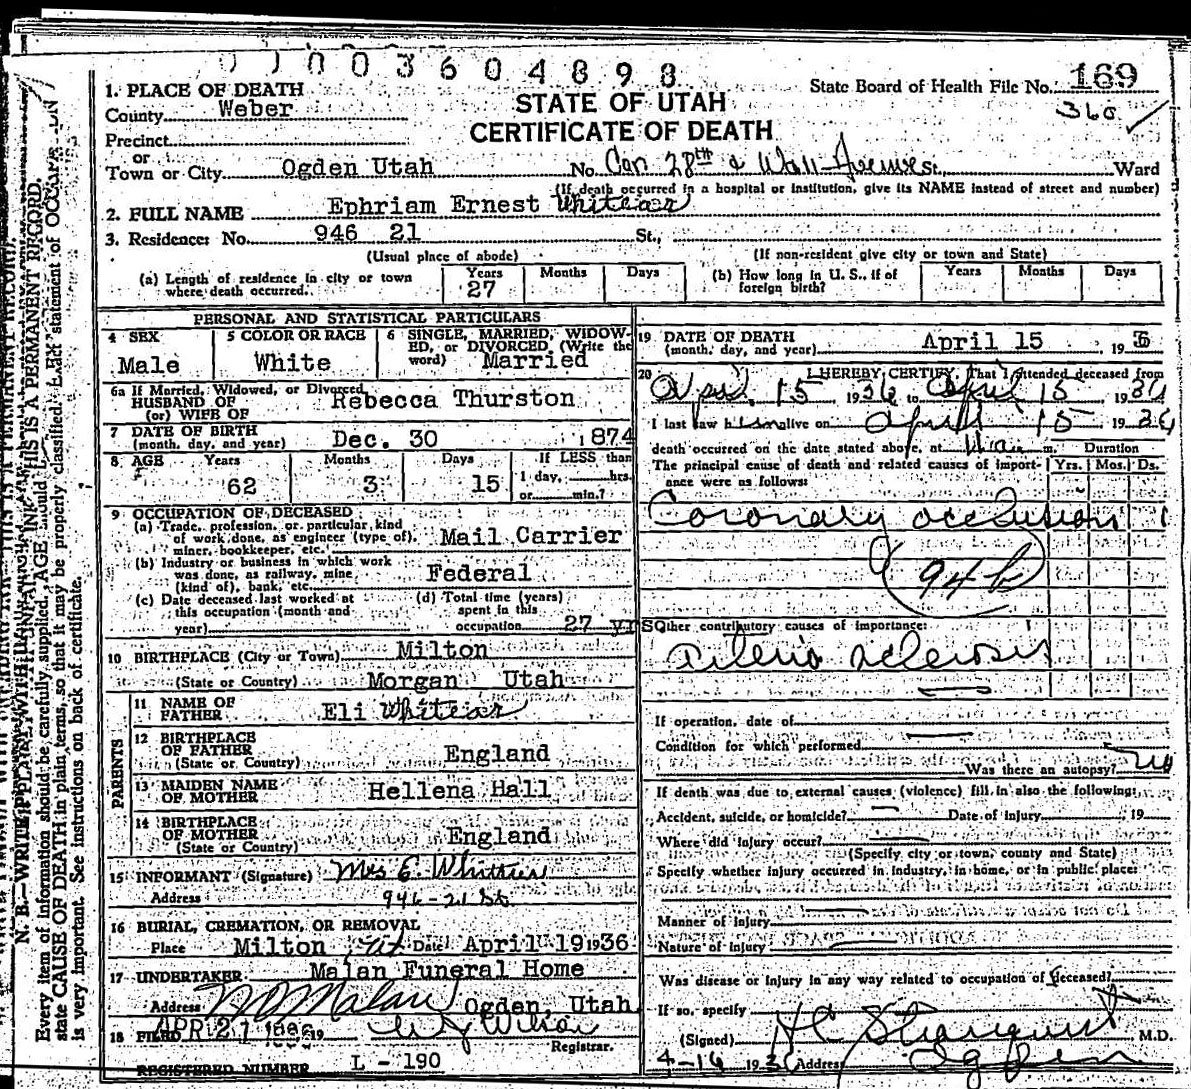 0003604898
State Board of Health File No. 169
360 ✓
STATE OF UTAH
CERTIFICATE OF DEATH
1. PLACE OF DEATH
County Weber
Precinct
or
Town or City Ogden Utah No. Cor 28th & Wall Avenue St., Ward
(If death occurred in a hospital or institution, give its NAME instead of street and number)
2. FULL NAME Ephriam Ernest Whitear
3. Residence: No. 946 21 St.,
(Usual place of abode) (If non-resident give city or town and State)
(a) Length of residence in city or town where death occurred. Years 27 Months Days
(b) How long in U. S., if of foreign birth? Years Months Days
PERSONAL AND STATISTICAL PARTICULARS
4 SEX Male
5 COLOR OR RACE White
6 SINGLE, MARRIED, WIDOWED, or DIVORCED (Write the word) Married
6a If Married, Widowed, or Divorced
HUSBAND OF
(or) WIFE OF Rebecca Thurston
7 DATE OF BIRTH
(month, day, and year) Dec. 30 1874
8 AGE Years 62 Months 3 Days 15 If LESS than
1 day, hrs.
or min.?
9 OCCUPATION OF DECEASED
(a) Trade, profession, or particular kind
of work done, as engineer (type of),
miner, bookkeeper, etc. Mail Carrier
(b) Industry or business in which work
was done, as railway, mine
(kind of), bank, etc. Federal
(c) Date deceased last worked at
this occupation (month and
year)
(d) Total time (years)
spent in this
occupation 27 yrs
10 BIRTHPLACE (City or Town) Milton
(State or Country) Morgan Utah
PARENTS
11 NAME OF
FATHER Eli Whitear
12 BIRTHPLACE
OF FATHER
(State or Country) England
13 MAIDEN NAME
OF MOTHER Hellena Hall
14 BIRTHPLACE
OF MOTHER
(State or Country) England
15 INFORMANT (Signature) Mrs E. Whitear
Address 946-21 St.
16 BURIAL, CREMATION, OR REMOVAL
Place Milton Ut Date April 19 1936
17 UNDERTAKER Malan Funeral Home
Address Malan Ogden, Utah
18 FILED APR 21 19
Registrar.
REGISTERED NUMBER L - 190
19 DATE OF DEATH
(month, day, and year) April 15 19
20 I HEREBY CERTIFY, That I attended deceased from
April 15 1936 to April 15 1936
I last saw him alive on April 15 1936
death occurred on the date stated above, at m.
The principal cause of death and related causes of importance were as follows:
Duration
Yrs. Mos. Ds.
Coronary occlusion 1
(94 b)
Other contributory causes of importance:
Arterio sclerosis
If operation, date of
Condition for which performed
Was there an autopsy? no
If death was due to external causes (violence) fill in also the following:
Accident, suicide, or homicide? Date of injury 19
Where did injury occur?
(Specify city or town, county and State)
Specify whether injury occurred in industry, in home, or in public place:
Manner of Injury
Nature of Injury
Was disease or injury in any way related to occupation of deceased?
If so, specify
(Signed) H C Stranquist M.D.
4-16 1936 Address Ogden
N. B.—WRITE PLAINLY WITH UNFADING INK—THIS IS A PERMANENT RECORD.
Every item of information should be carefully supplied. AGE should
state CAUSE OF DEATH in plain terms, so that it may be properly classified. Exact statement of
is very important. See instructions on back of certificate.